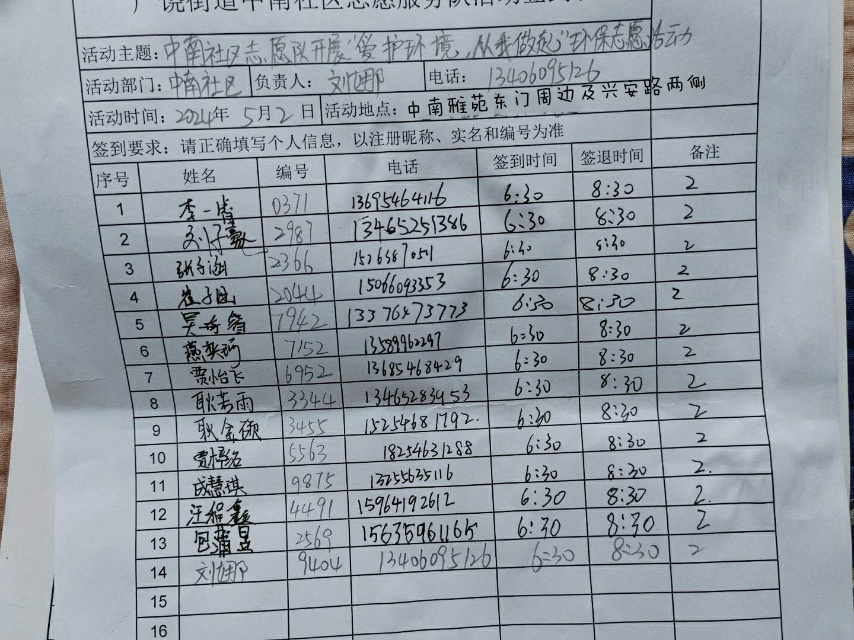 广饶街道中南社区志愿服务队活动签到
活动主题：中南社区志愿队开展“爱护环境，从我做起”环保志愿活动
活动部门：中南社区 负责人： 刘娜 电话： 13406095126
活动时间：2024年 5月2日 活动地点：中南雅苑东门周边及兴安路两侧
签到要求：请正确填写个人信息，以注册昵称、实名和编号为准
序号 姓名 编号 电话 签到时间 签退时间 备注
1 李一 0371 13695464116 6:30 8:30 2
2 刘子 2987 13465251386 6:30 8:30 2
3 张子涵 2366 6:30 8:30 2
4 崔子 2044 15066093353 6:30 8:30 2
5 吴 7942 13376473773 6:30 8:30 2
6 燕奕 7152 13589962297 6:30 8:30 2
7 贾怡飞 6952 13685468429 6:30 8:30 2
8 耿若雨 3344 13465283453 6:30 8:30 2
9 耿金硕 3455 15254681792. 6:30 8:30 2
10 贾梓 5563 18254631288 6:30 8:30 2
11 成慧琪 9875 13255635116 6:30 8:30 2.
12 汪程鑫 4491 15964192612 6:30 8:30 2.
13 包 昱 2569 15635961165 6:30 8:30 2
14 刘娜 9404 13406095126 6:30 8:30 2
15
16